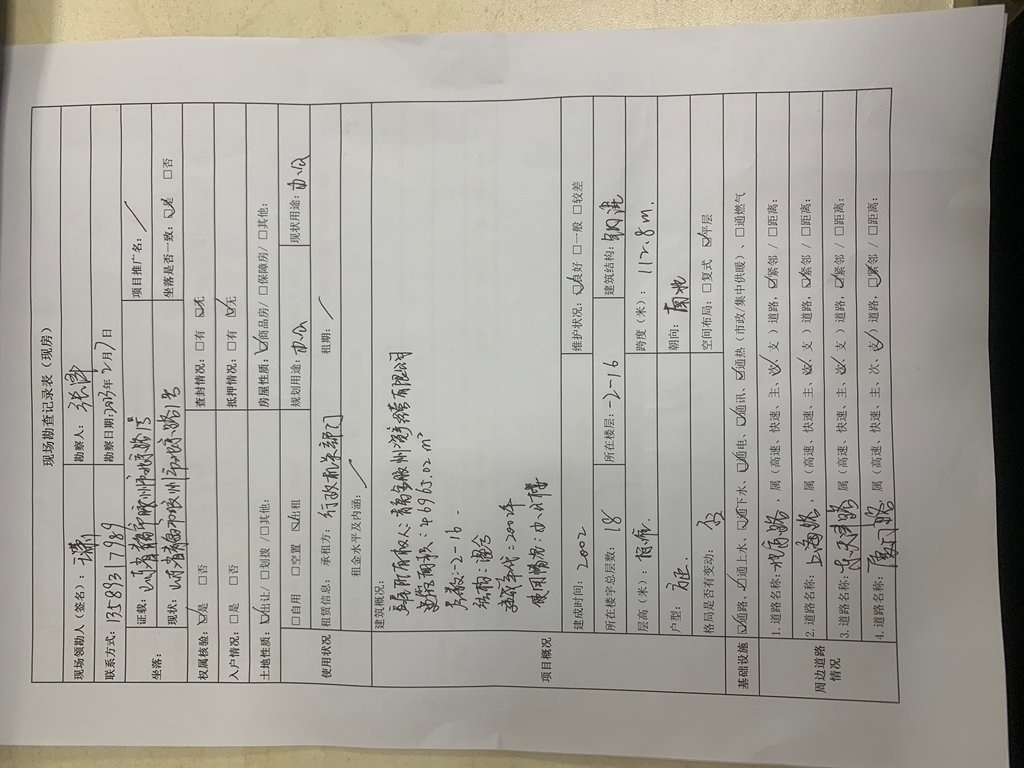 现场勘查记录表（现房）
现场领勘人（签名）： 勘察人：
联系方式：13589317989 勘察日期：2023年2月7日
坐落： 证载：山东省青岛市胶州市北京路1号 项目推广名：/
现状：山东省青岛市胶州市北京路1号 坐落是否一致：☑是 □否
权属核验：☑是 □否 查封情况：□有 ☑无
入户情况：□是 □否 抵押情况：□有 ☑无
土地性质：☑出让/□划拨/□其他： 房屋性质：☑商品房/□保障房/□其他：
使用状况 □自用 □空置 ☑出租 规划用途：办公 现状用途：办公
租赁信息：承租方：行政机关部门 租期：/
租金水平及内涵：/
项目概况 建筑概况：
房屋所有权人：青岛胶州湾 有限公司
建筑面积：46965.02m²
层数：-2-16.
结构：混合
建成年代：2002年
使用情况：办公楼
建成时间：2002 维护状况：☑良好 □一般 □较差
所在楼宇总层数：18 所在楼层：-2-16 建筑结构：钢混
层高（米）： 跨度（米）：112.8m.
户型： 朝向：南北
格局是否有变动：否 空间布局：□复式 ☑平层
基础设施 ☑通路、☑通上水、☑通下水、☑通电、☑通讯、☑通热（市政/集中供暖）、□通燃气
周边道路情况 1.道路名称： 路，属（高速、快速、主、次、支）道路，☑紧邻/□距离：
2.道路名称：上海路，属（高速、快速、主、次、支）道路，☑紧邻/□距离：
3.道路名称： 路 属（高速、快速、主、次、支）道路，☑紧邻/□距离：
4.道路名称：厦门路 属（高速、快速、主、次、支）道路，☑紧邻/□距离：